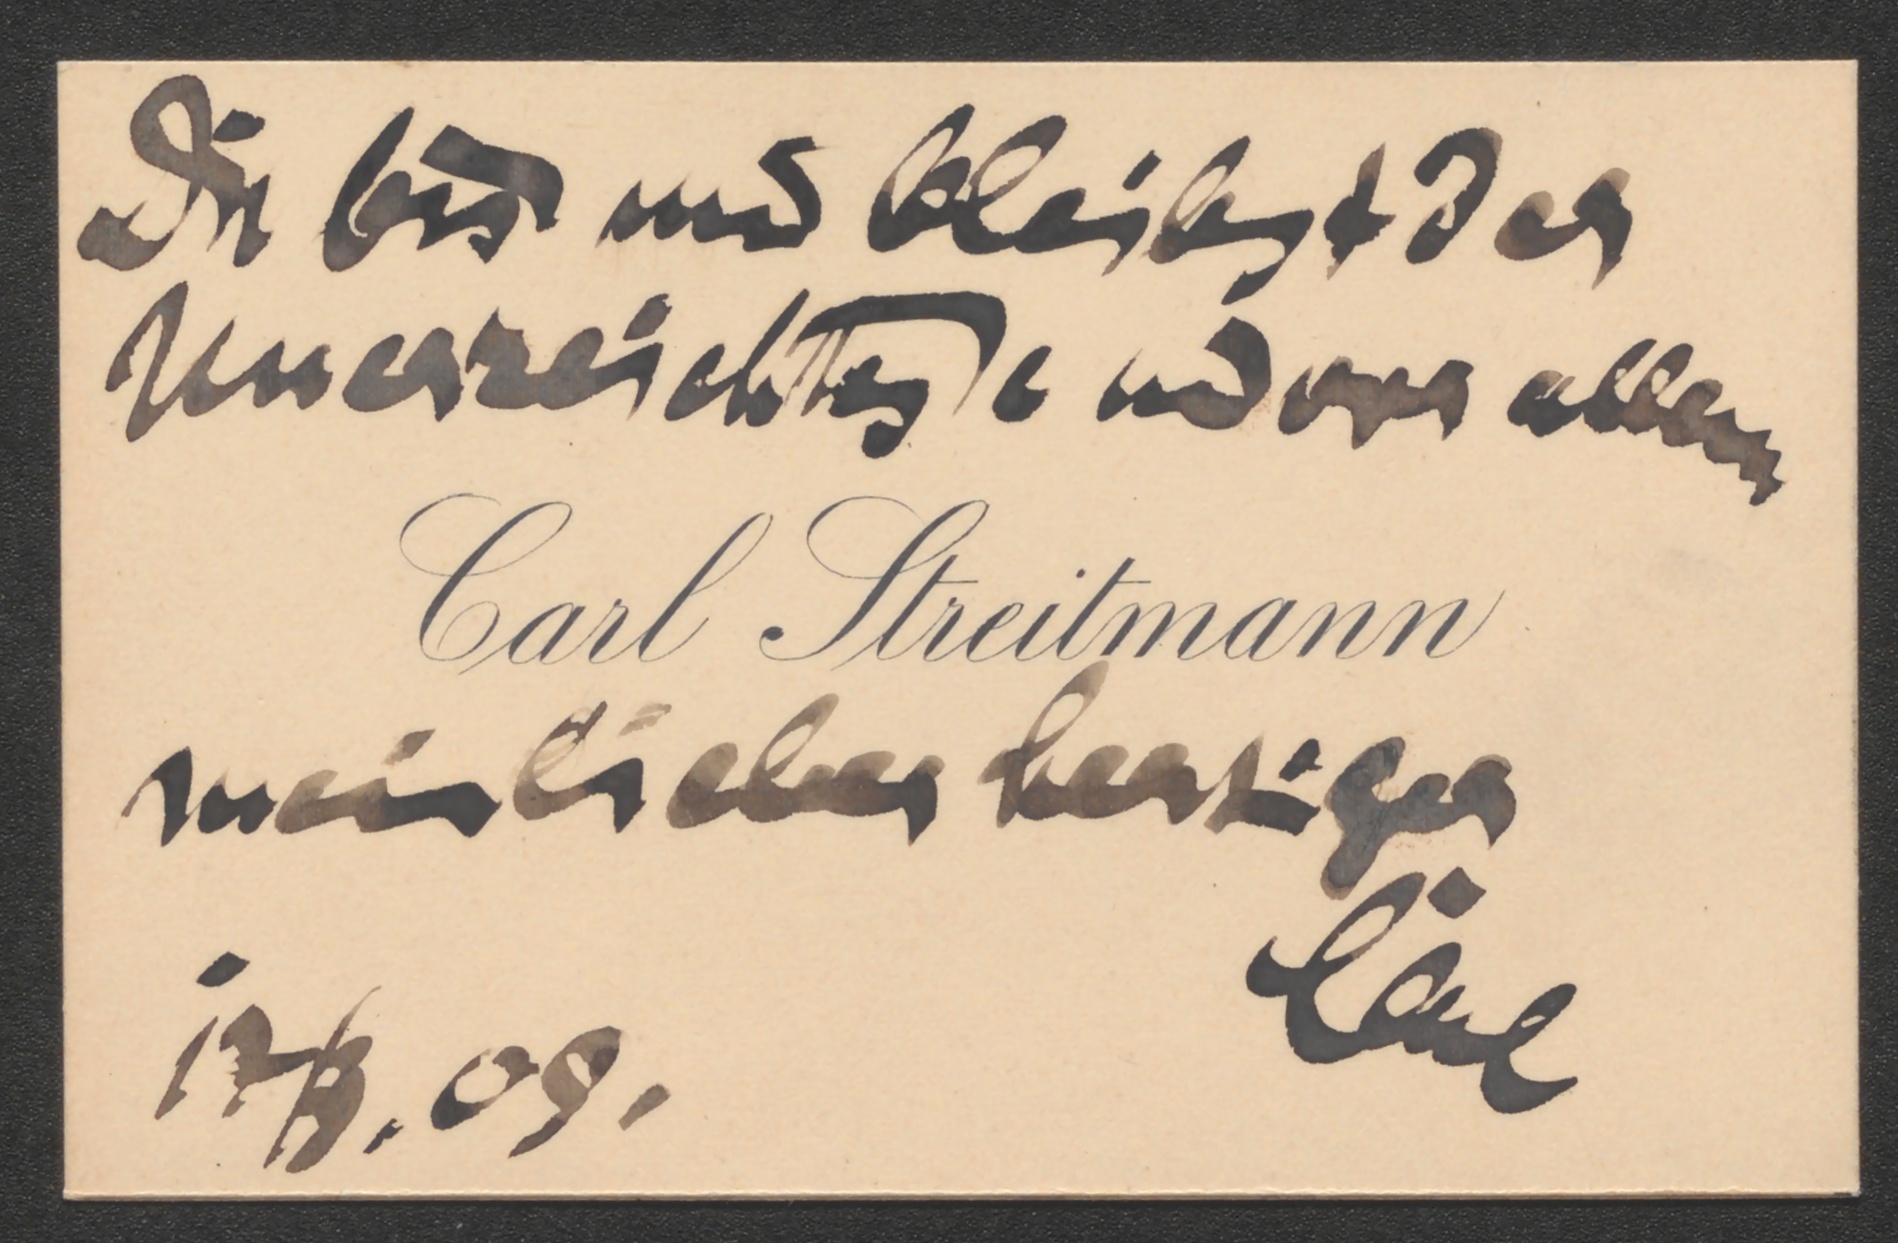 Du bist und bleibst der
Unerreichteste und vor allem
Carl Streitmann
mein lieber herziger
17/8.09.